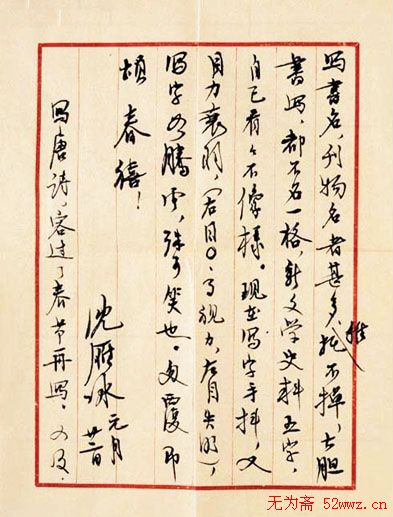 写書名，刊物名者甚多，推托不掉，大胆
書写，都不名一格，新文学史料五字，
自己看々不像样。现在写字手抖，又
目力衰弱，（右目〇、3视力，左目失明），
写字如腾雲，殊可笑也。匆覆即
颂春禧！
沈雁冰 元月
廿二日
写唐诗，容过了春节再写，又及．
无为斋 52wwz.cn